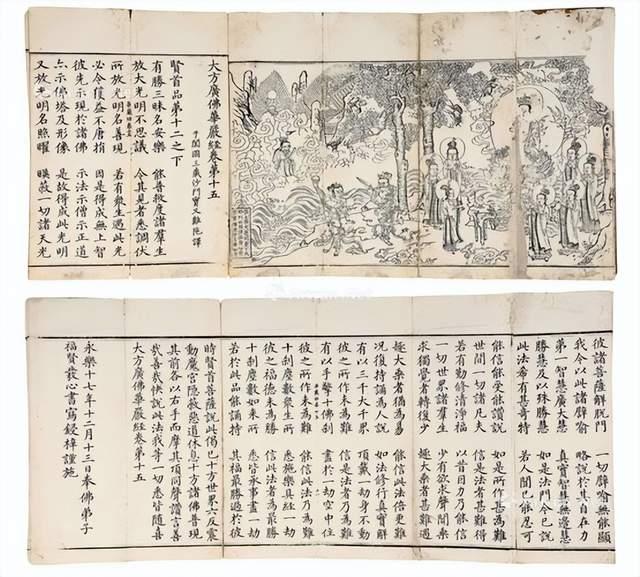 大方廣佛華嚴經卷第十五
于闐國三藏沙門實叉難陀譯
賢首品第十二之下
有勝三昧名安樂 能普救度諸羣生
放大光明不思議 令其見者悉調伏
所放光明名善現 若有眾生遇此光
必令獲益不唐捐 因是得成無上智
彼先示現於諸佛 示法示僧示正道
亦示佛塔及形像 是故得成此光明
又放光明名照曜 暎蔽一切諸天光
彼諸菩薩解脫門 一切譬喻無能顯
我今以此諸譬喻 略說於其自在力
第一智慧廣大慧 真實智慧無邊慧
勝慧及以殊勝慧 如是法門今已說
此法希有甚奇特 若人聞已能忍可
能信能受能讚說 如是所作甚為難
世間一切諸凡夫 信是法者甚難得
若有勤修清淨福 以昔因力乃能信
一切世界諸羣生 少有欲求聲聞乘
求獨覺者轉復少 趣大乘者甚難遇
趣大乘者猶為易 能信此法倍更難
況復持誦為人說 如法修行真實解
有以三千大千界 頂戴一劫身不動
彼之所作未為難 信是法者乃為難
有以手擎十佛剎 盡於一劫空中住
彼之所作未為難 能信此法乃為難
十剎塵數眾生所 悉施樂具經一劫
彼之福德未為勝 信此法者為最勝
十剎塵數如來所 悉皆承事盡一劫
若於此品能誦持 其福最勝過於彼
時賢首菩薩說此偈已十方世界六反震
動魔宮隱蔽惡道休息十方諸佛普現
其前各以右手而摩其頂同聲讚言善
哉善哉快說此法我等一切悉皆隨喜
大方廣佛華嚴經卷第十五
永樂十七年十二月十三日奉佛弟子
福賢發心書寫鋟梓謹施